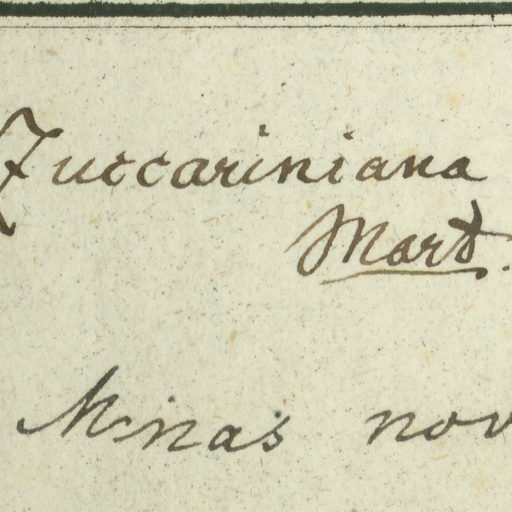 Zuccariniana
Mart.
Minas nov